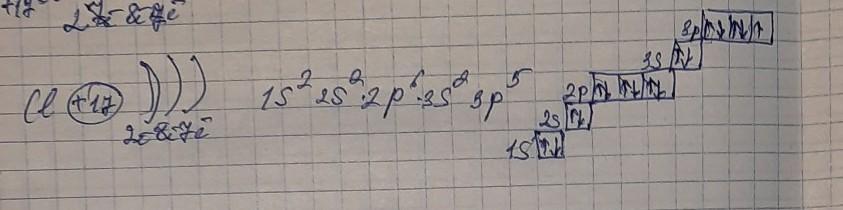 +17 2ē 8ē 7ē
Cl +17 ))) 1S² 2S² 2p⁶ 3S² 3p⁵
2ē 8ē 7ē
3p ↑↓ ↑↓ ↑
3S ↑↓
2p ↑↓ ↑↓ ↑↓
2S ↑↓
1S ↑↓